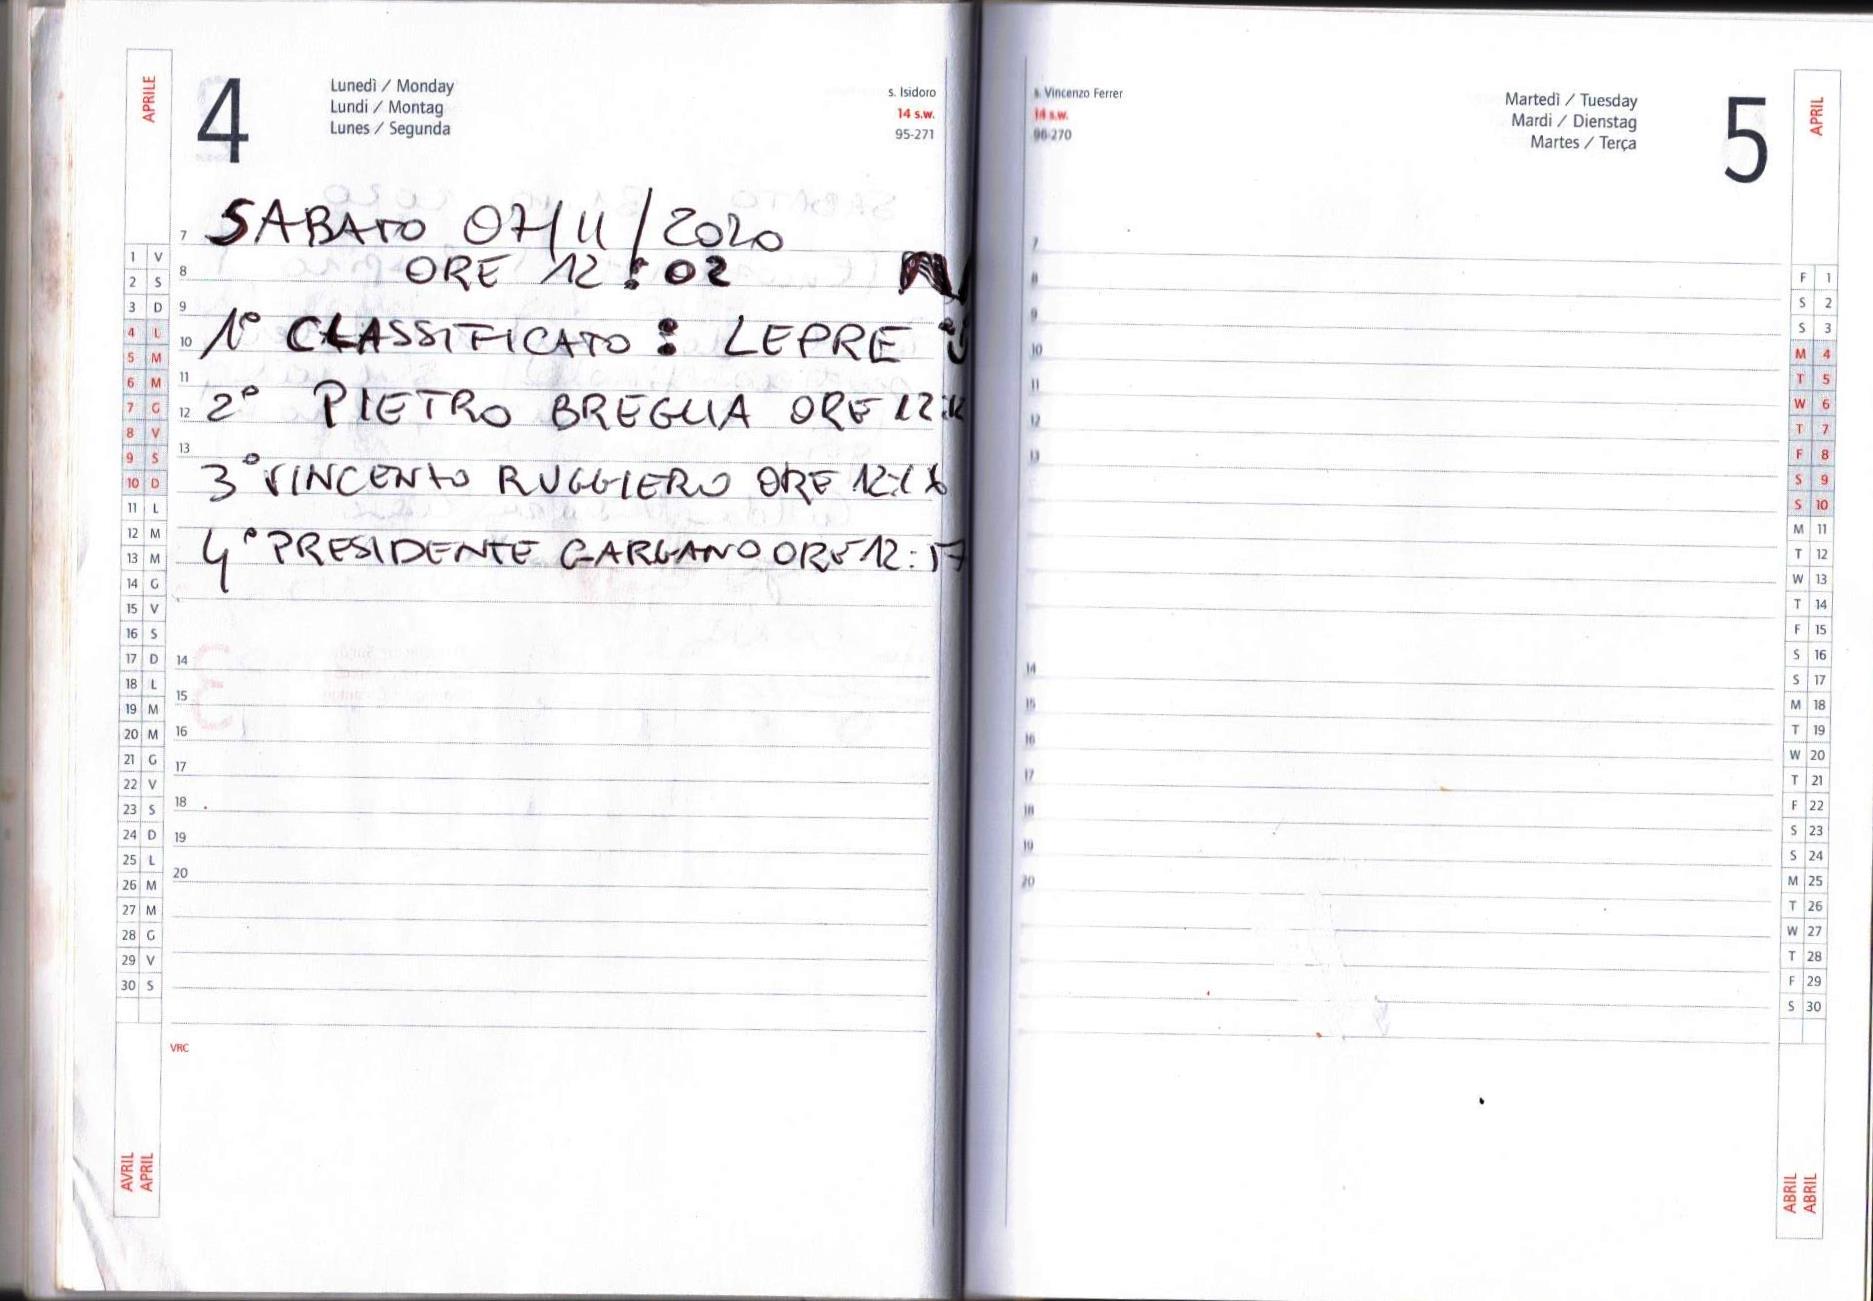 APRILE
4
Lunedì / Monday
Lundi / Montag
Lunes / Segunda
s. Isidoro
14 s.w.
95-271
SABATO 07/11/2020
ORE 12:02
1° CLASSIFICATO: LEPRE
2° PIETRO BREGLIA ORE 12:
3° VINCENZO RUGGIERO ORE
4° PRESIDENTE GARGANO ORE 12:17
7
8
9
10
11
12
13
14
15
16
17
18
19
20
VRC
1 V
2 S
3 D
4 L
5 M
6 M
7 G
8 V
9 S
10 D
11 L
12 M
13 M
14 G
15 V
16 S
17 D
18 L
19 M
20 M
21 G
22 V
23 S
24 D
25 L
26 M
27 M
28 G
29 V
30 S
AVRIL
APRIL
s. Vincenzo Ferrer
14 s.w.
96-270
Martedì / Tuesday
Mardi / Dienstag
Martes / Terça
5
APRIL
7
8
9
10
11
12
13
14
15
16
17
18
19
20
F 1
S 2
S 3
M 4
T 5
W 6
T 7
F 8
S 9
S 10
M 11
T 12
W 13
T 14
F 15
S 16
S 17
M 18
T 19
W 20
T 21
F 22
S 23
S 24
M 25
T 26
W 27
T 28
F 29
S 30
ABRIL
ABRIL